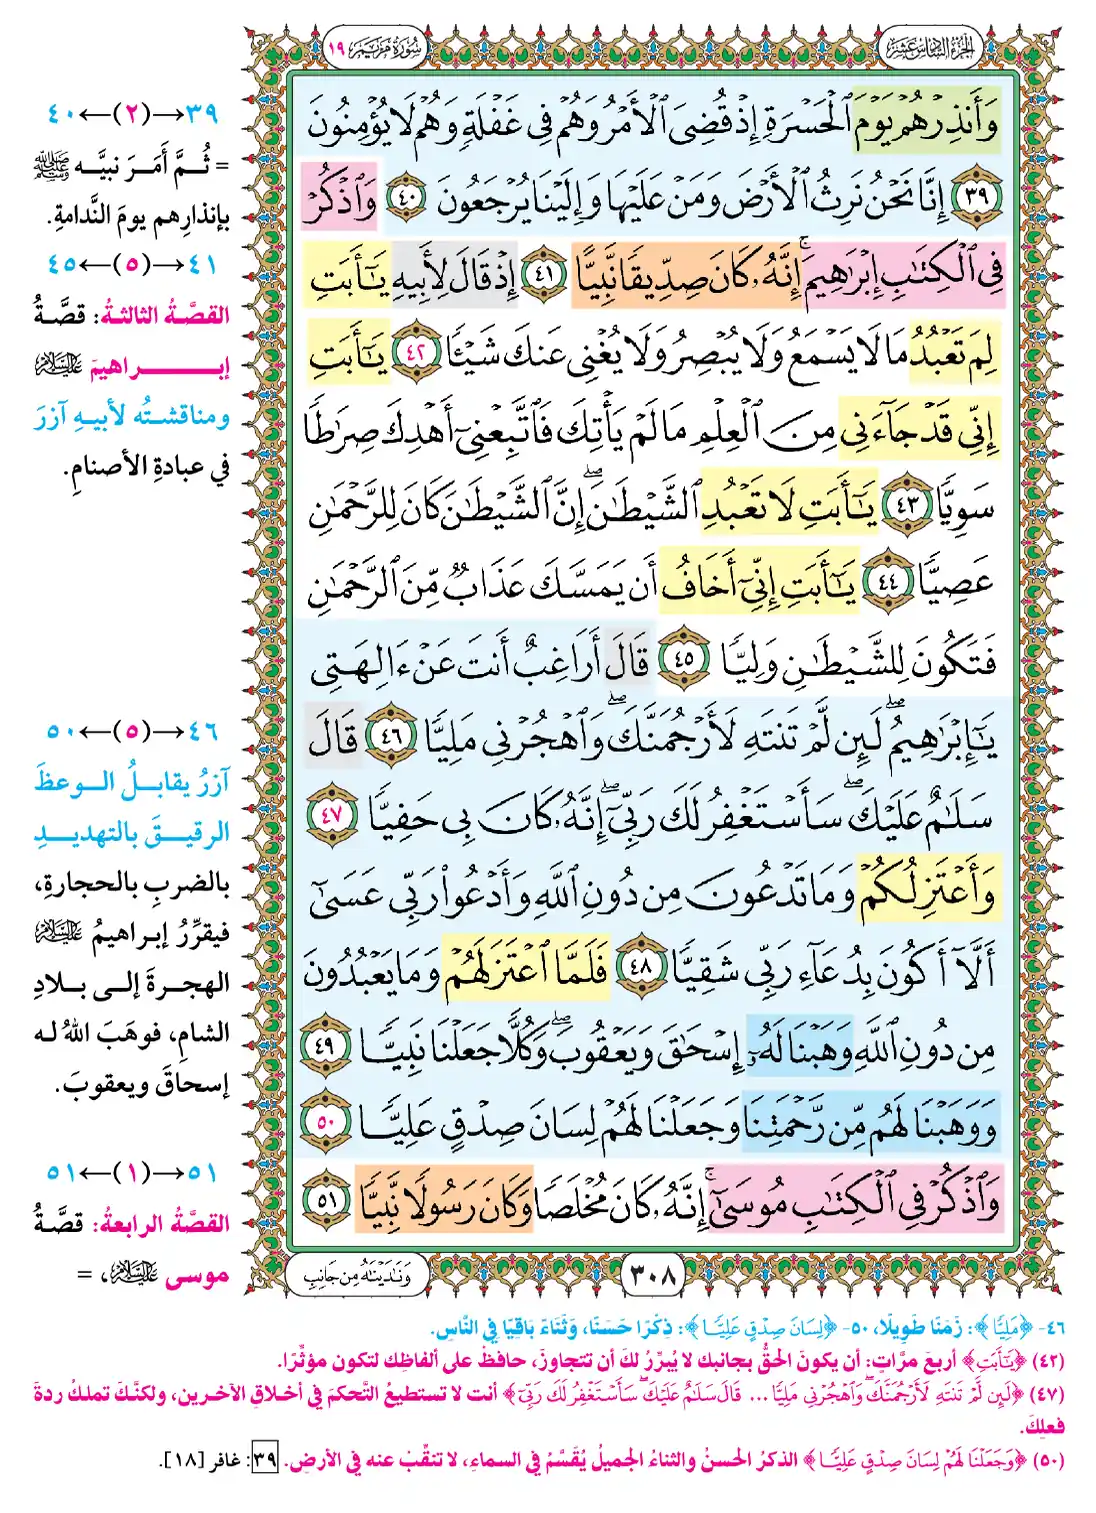 الجزء السادس عشر
سورة مريم ١٩
وَأَنذِرْهُمْ يَوْمَ ٱلْحَسْرَةِ إِذْ قُضِىَ ٱلْأَمْرُ وَهُمْ فِى غَفْلَةٍ وَهُمْ لَا يُؤْمِنُونَ
٣٩ إِنَّا نَحْنُ نَرِثُ ٱلْأَرْضَ وَمَنْ عَلَيْهَا وَإِلَيْنَا يُرْجَعُونَ ٤٠ وَٱذْكُرْ
فِى ٱلْكِتَٰبِ إِبْرَٰهِيمَ ۚ إِنَّهُۥ كَانَ صِدِّيقًا نَّبِيًّا ٤١ إِذْ قَالَ لِأَبِيهِ يَٰٓأَبَتِ
لِمَ تَعْبُدُ مَا لَا يَسْمَعُ وَلَا يُبْصِرُ وَلَا يُغْنِى عَنكَ شَيْـًٔا ٤٢ يَٰٓأَبَتِ
إِنِّى قَدْ جَآءَنِى مِنَ ٱلْعِلْمِ مَا لَمْ يَأْتِكَ فَٱتَّبِعْنِىٓ أَهْدِكَ صِرَٰطًا
سَوِيًّا ٤٣ يَٰٓأَبَتِ لَا تَعْبُدِ ٱلشَّيْطَٰنَ ۖ إِنَّ ٱلشَّيْطَٰنَ كَانَ لِلرَّحْمَٰنِ
عَصِيًّا ٤٤ يَٰٓأَبَتِ إِنِّىٓ أَخَافُ أَن يَمَسَّكَ عَذَابٌ مِّنَ ٱلرَّحْمَٰنِ
فَتَكُونَ لِلشَّيْطَٰنِ وَلِيًّا ٤٥ قَالَ أَرَاغِبٌ أَنتَ عَنْ ءَالِهَتِى
يَٰٓإِبْرَٰهِيمُ ۖ لَئِن لَّمْ تَنتَهِ لَأَرْجُمَنَّكَ ۖ وَٱهْجُرْنِى مَلِيًّا ٤٦ قَالَ
سَلَٰمٌ عَلَيْكَ ۖ سَأَسْتَغْفِرُ لَكَ رَبِّىٓ ۖ إِنَّهُۥ كَانَ بِى حَفِيًّا ٤٧
وَأَعْتَزِلُكُمْ وَمَا تَدْعُونَ مِن دُونِ ٱللَّهِ وَأَدْعُوا۟ رَبِّى عَسَىٰٓ
أَلَّآ أَكُونَ بِدُعَآءِ رَبِّى شَقِيًّا ٤٨ فَلَمَّا ٱعْتَزَلَهُمْ وَمَا يَعْبُدُونَ
مِن دُونِ ٱللَّهِ وَهَبْنَا لَهُۥٓ إِسْحَٰقَ وَيَعْقُوبَ ۖ وَكُلًّا جَعَلْنَا نَبِيًّا ٤٩
وَوَهَبْنَا لَهُم مِّن رَّحْمَتِنَا وَجَعَلْنَا لَهُمْ لِسَانَ صِدْقٍ عَلِيًّا ٥٠
وَٱذْكُرْ فِى ٱلْكِتَٰبِ مُوسَىٰٓ ۚ إِنَّهُۥ كَانَ مُخْلَصًا وَكَانَ رَسُولًا نَّبِيًّا ٥١
٣٠٨
وَنَٰدَيْنَٰهُ مِن جَانِبِ
٣٩→(٢)←٤٠
= ثُمَّ أَمَرَ نبيَّه ﷺ
بإنذارِهم يومَ النَّدامةِ.
٤١→(٥)←٤٥
القصَّةُ الثالثةُ: قصَّةُ
إبراهيمَ عليه السلام
ومناقشتُه لأبيهِ آزرَ
في عبادةِ الأصنامِ.
٤٦→(٥)←٥٠
آزرُ يقابلُ الوعظَ
الرقيقَ بالتهديدِ
بالضربِ بالحجارةِ،
فيقرِّرُ إبراهيمُ عليه السلام
الهجرةَ إلى بلادِ
الشامِ، فوهَبَ اللهُ له
إسحاقَ ويعقوبَ.
٥١→(١)←٥١
القصَّةُ الرابعةُ: قصَّةُ
موسى عليه السلام، =
٤٦- ﴿مَلِيًّا﴾: زَمَنًا طَوِيلًا، ٥٠- ﴿لِسَانَ صِدْقٍ عَلِيًّا﴾: ذِكْرًا حَسَنًا، وَثَنَاءً بَاقِيًا فِي النَّاسِ.
(٤٢) ﴿يَٰٓأَبَتِ﴾ أربعَ مرَّاتٍ: أن يكونَ الحقُّ بجانبك لا يُبرِّرُ لكَ أن تتجاوزَ، حافظْ على ألفاظِك لتكون مؤثِّرًا.
(٤٧) ﴿لَئِن لَّمْ تَنتَهِ لَأَرْجُمَنَّكَ ۖ وَٱهْجُرْنِى مَلِيًّا ... قَالَ سَلَٰمٌ عَلَيْكَ ۖ سَأَسْتَغْفِرُ لَكَ رَبِّىٓ﴾ أنت لا تستطيعُ التَّحكمَ في أخلاقِ الآخرين، ولكنَّكَ تملكُ ردةَ
فعلِكَ.
(٥٠) ﴿وَجَعَلْنَا لَهُمْ لِسَانَ صِدْقٍ عَلِيًّا﴾ الذكرُ الحسنُ والثناءُ الجميلُ يُقَسَّمُ في السماءِ، لا تنقِّبْ عنه في الأرضِ. ٣٩: غافر [١٨].